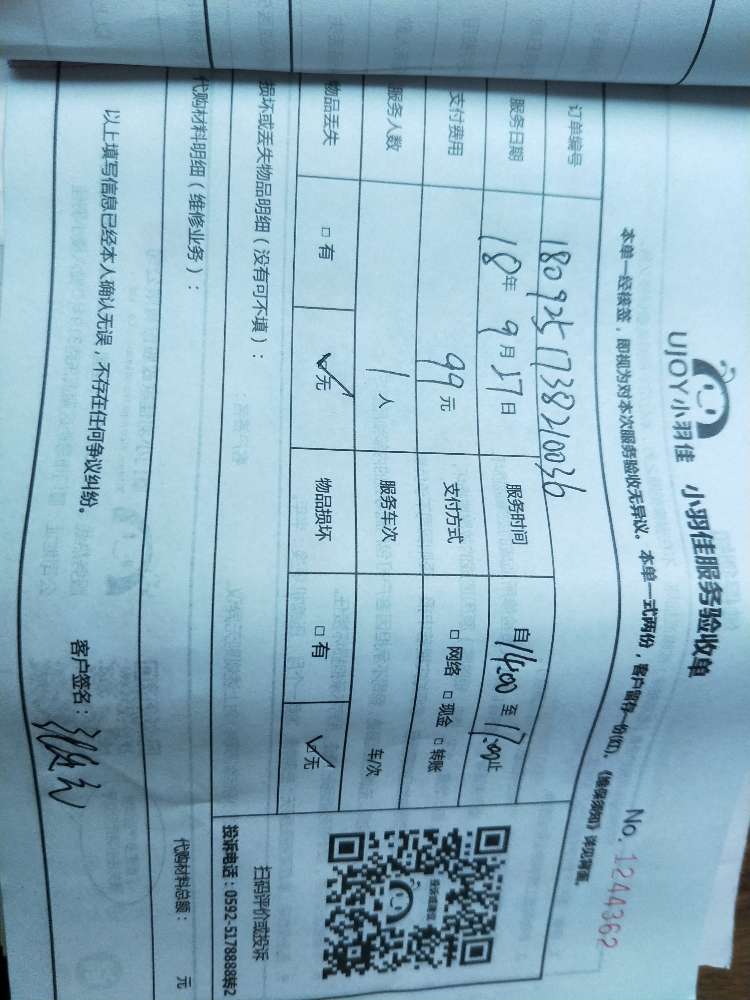 UJOY小羽佳 小羽佳服务验收单 No. 1244362
本单一经接签，即视为对本次服务验收无异议。本单一式两份，客户留存一份(红)、《维保须知》详见背面。
订单编号 1809251738210036
服务日期 18年 9月27日 服务时间 自14:00至17:00止
支付费用 99元 支付方式 □网络 □现金 □转账
服务人数 1人 服务车次 车次
物品丢失 □有 ☑无 物品损坏 □有 ☑无
损坏或丢失物品明细（没有可不填）：
扫码评价或投诉
投诉电话：0592-5178888转2
代购材料明细（维修业务）：
代购材料总额： 元
以上填写信息已经本人确认无误，不存在任何争议纠纷。
客户签名：